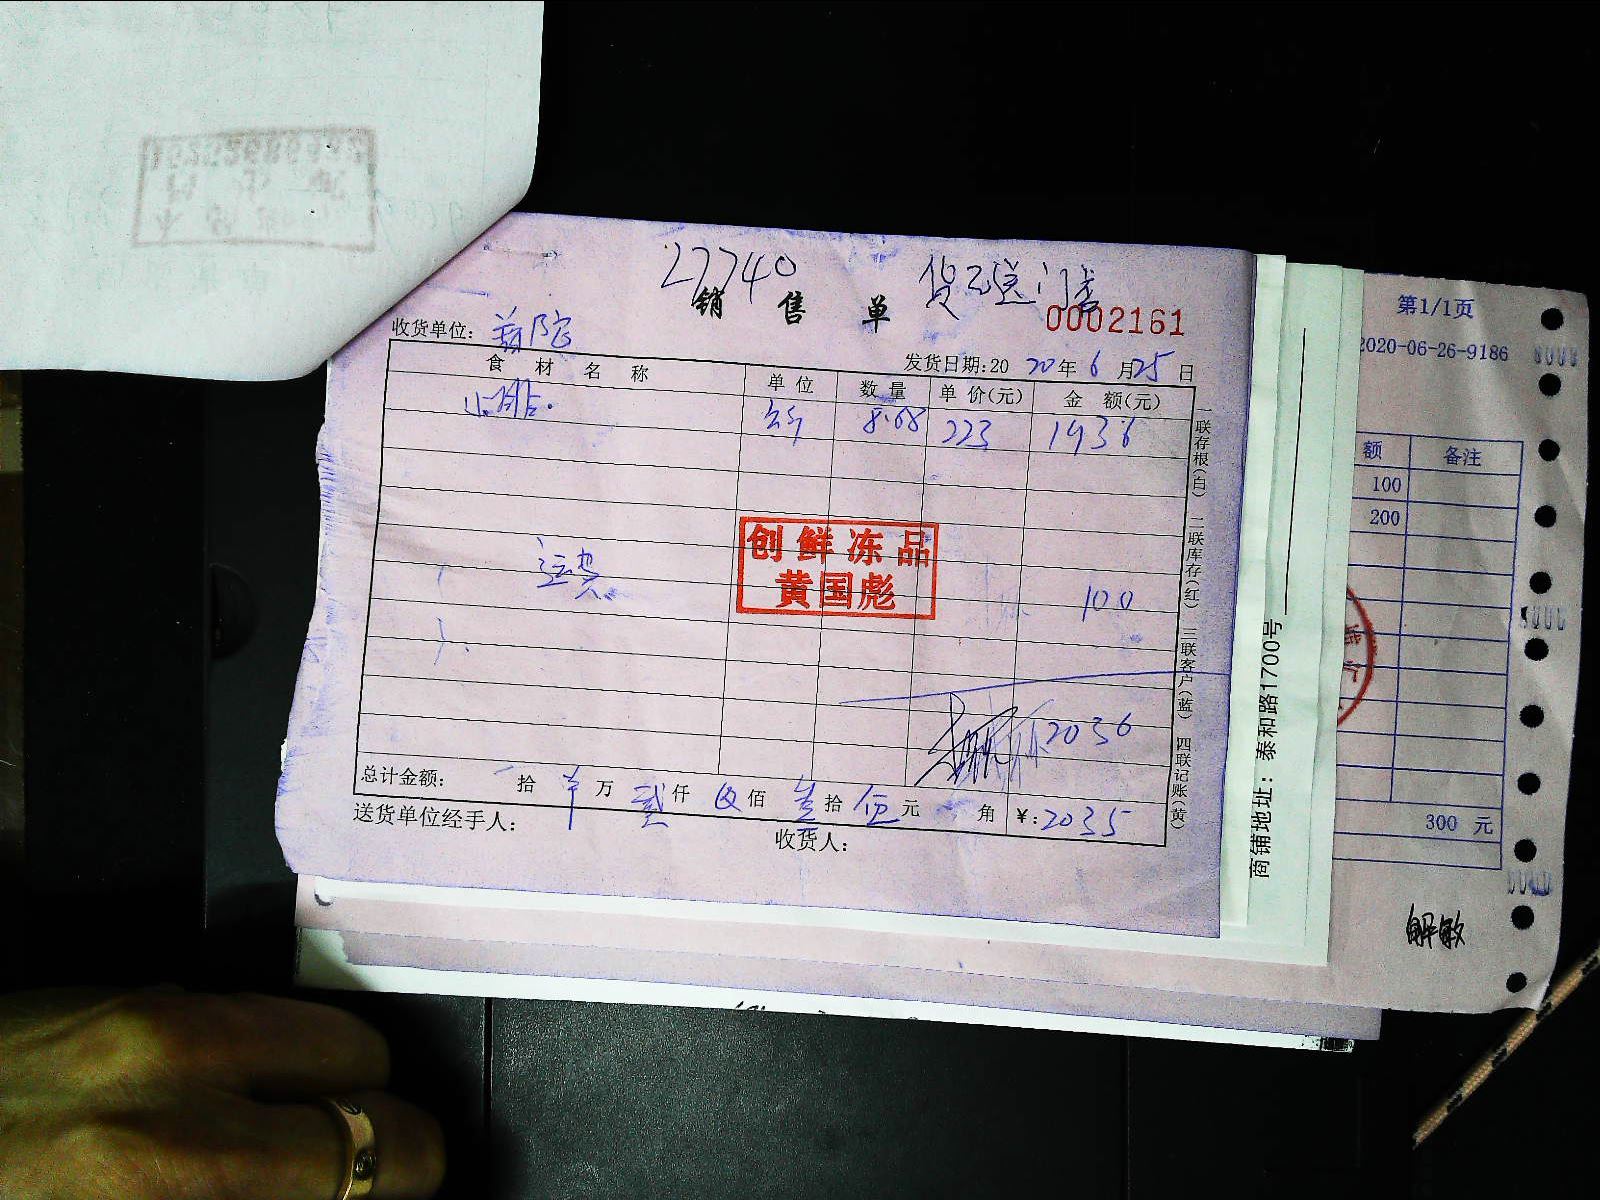 27740
销 售 单
0002161
收货单位:
发货日期:20 20年 6 月 25 日
食 材 名 称 单 位 数 量 单 价(元) 金 额(元)
小排. 公斤 8.68 223 1936
创鲜冻品
黄国彪
运费 100
2036
总计金额: 拾 万 贰 仟 佰 叁 拾 伍 元 角 ¥: 2035
送货单位经手人: 收货人:
一联存根(白) 二联库存(红) 三联客户(蓝) 四联记账(黄)
商铺地址:泰和路1700号
第1/1页
2020-06-26-9186
额 备注
100
200
300 元
解敏